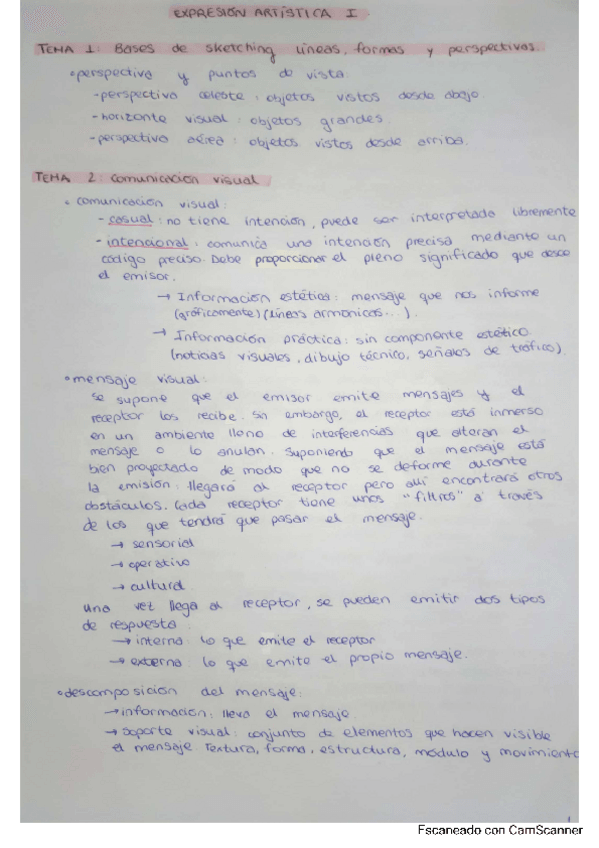 EXPRESIÓN ARTÍSTICA I
TEMA 1: Bases de sketching líneas, formas y perspectivas.
• perspectiva y puntos de vista.
- perspectiva celeste: objetos vistos desde abajo.
- horizonte visual: objetos grandes.
- perspectiva aérea: objetos vistos desde arriba.
TEMA 2: comunicación visual
• comunicación visual:
- casual: no tiene intención, puede ser interpretado libremente
- intencional: comunica una intención precisa mediante un
código preciso. Debe proporcionar el pleno significado que desee
el emisor.
→ Información estética: mensaje que nos informe
(gráficamente) (líneas armonicas...).
→ Información práctica: sin componente estético
(noticias visuales, dibujo técnico, señales de tráfico).
• mensaje visual:
se supone que el emisor emite mensajes y el
receptor los recibe. Sin embargo, el receptor está inmerso
en un ambiente lleno de interferencias que alteran el
mensaje o lo anulan. Suponiendo que el mensaje está
bien proyectado de modo que no se deforme durante
la emisión: llegará al receptor pero allí encontrará otros
obstáculos. Cada receptor tiene unos "filtros" a través
de los que tendrá que pasar el mensaje.
→ sensorial
→ operativo
→ cultural
una vez llega al receptor, se pueden emitir dos tipos
de respuesta
→ interna: lo que emite el receptor
→ externa: lo que emite el propio mensaje.
• descomposición del mensaje:
→ información: lleva el mensaje
→ soporte visual: conjunto de elementos que hacen visible
el mensaje. Textura, forma, estructura, módulo y movimiento
1
Escaneado con CamScanner